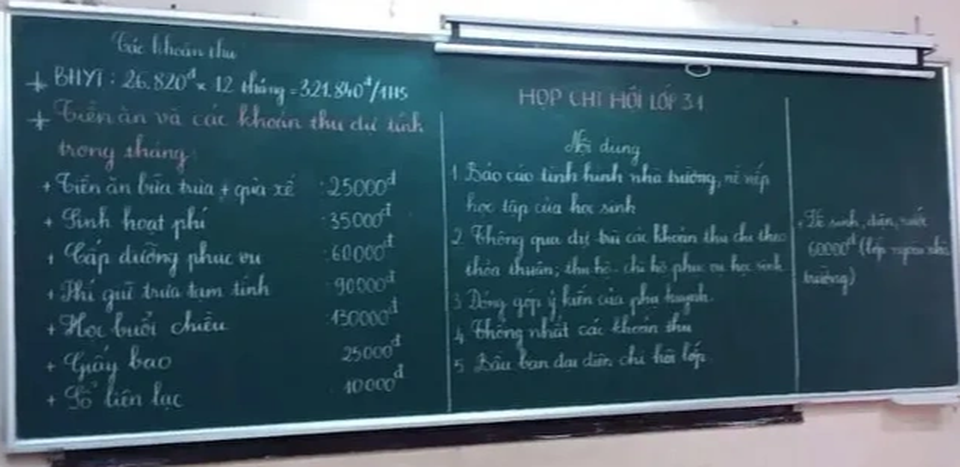 Các khoản thu
+ BHYT: 26.820đ x 12 tháng = 321.840đ/1HS
+ Tiền ăn và các khoản thu dự tính
trong tháng:
+ Tiền ăn bữa trưa + quà xế : 25000đ
+ Sinh hoạt phí : 35000đ
+ Cấp dưỡng phục vụ : 60000đ
+ Phí giữ trưa tạm tính : 90000đ
+ Học buổi chiều : 130000đ
+ Giấy bao 25000đ
+ Sổ liên lạc : 10000đ
HỌP CHI HỘI LỚP 31
Nội dung
1. Báo cáo tình hình nhà trường, nề nếp
học tập của học sinh
2. Thông qua dự trù các khoản thu chi theo
thỏa thuận; thu hộ - chi hộ phục vụ học sinh
3. Đóng góp ý kiến của phụ huynh.
4. Thống nhất các khoản thu
5. Bầu ban đại diện chi hội lớp.
+ Vệ sinh, điện, nước
60000đ (lớp ngoài nhà
trường)